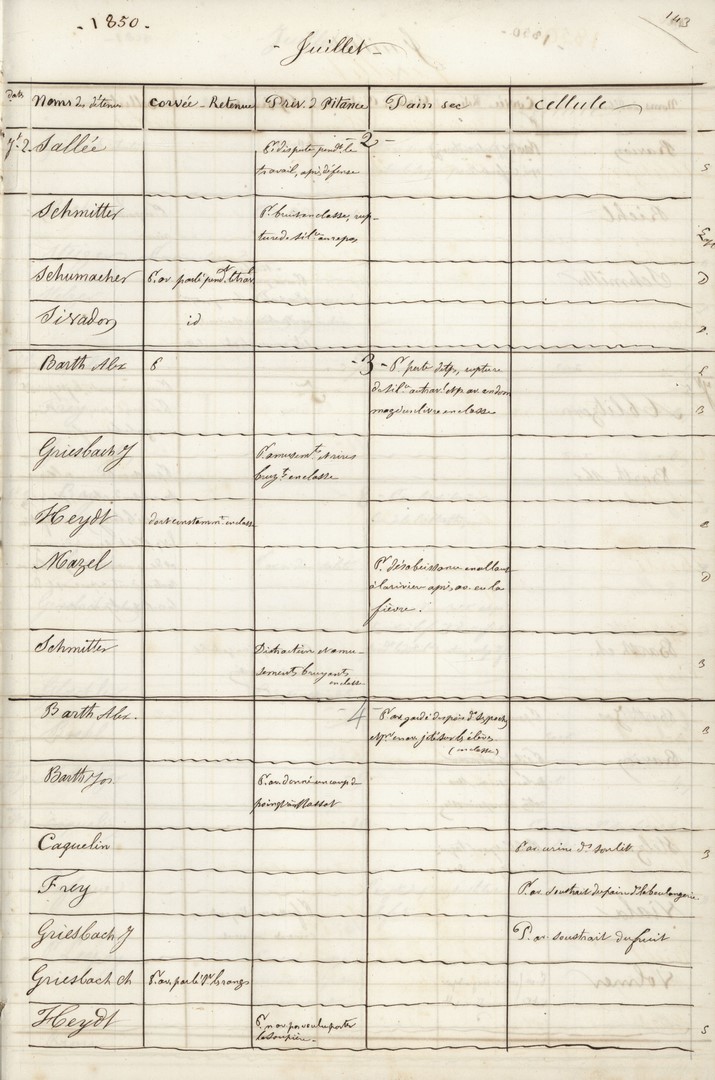 - 1850 - 143
- Juillet -
Dats Noms des détenus Corvée - Retenue Priv. d Pitance Pain sec Cellule
Jt. 2. Sallée - 2 -
Pr dispute pendt. le
travail, après défense
Schmitter Pr. bruit en classe, rup-
ture de sil. au repos
Schumacher Pr. av parlé pendt. le trav.
Sivadon id
Barth Alex P - 3 - Pr. perte de tps, rupture
de sil. au trav. et pr. av. endom
magé un livre en classe
Griesbach J Pr. amusemts. et rires
bruyts. en classe
Heydt dort constammt. en classe
Mazel Pr. désobéissance en allant
à la rivière après av. eu la
fièvre.
Schmitter Distraction et amu
sements bruyants
en classe
Barth Alex. - 4 - Pr av gardé des pois ds. sa poche
et pr. en av. jeté sur les élèves
(en classe)
Barth Jos. Pr. av. donné un coup d
poing à Massot
Caquelin Pr av. uriné ds son lit.
Frey Pr. av. soustrait du pain ds. la boulangerie
Griesbach J Pr. av soustrait du fruit
Griesbach Ch Pr. av. parlé ds. les rangs
Heydt Pr. n'av. pas voulu porter
la soupière.